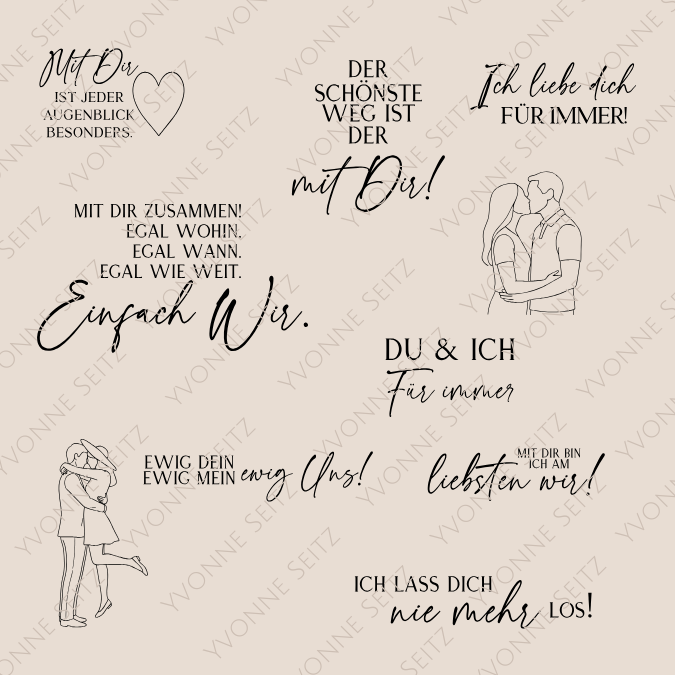 Mit Dir
IST JEDER
AUGENBLICK
BESONDERS.
DER
SCHÖNSTE
WEG IST
DER
mit Dir!
Ich liebe dich
FÜR IMMER!
MIT DIR ZUSAMMEN!
EGAL WOHIN.
EGAL WANN.
EGAL WIE WEIT.
Einfach Wir.
DU & ICH
Für immer
EWIG DEIN
EWIG MEIN
ewig Uns!
MIT DIR BIN
ICH AM
liebsten wir!
ICH LASS DICH
nie mehr LOS!
YVONNE SEITZ